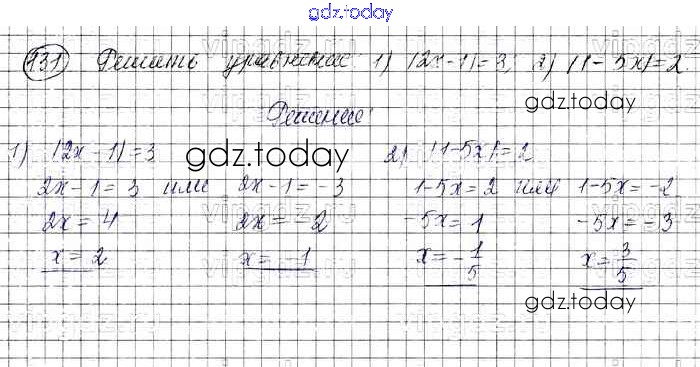 gdz.today
131 Решить уравнение 1) |2x-1|=3; 2) |1-5x|=2.
gdz.today
Решение:
1) |2x-1|=3 2) |1-5x|=2
gdz.today
2x-1=3 или 2x-1=-3 1-5x=2 или 1-5x=-2
2x=4 2x=-2 -5x=1 -5x=-3
x=2 x=-1 x=-1/5 x=3/5
gdz.today